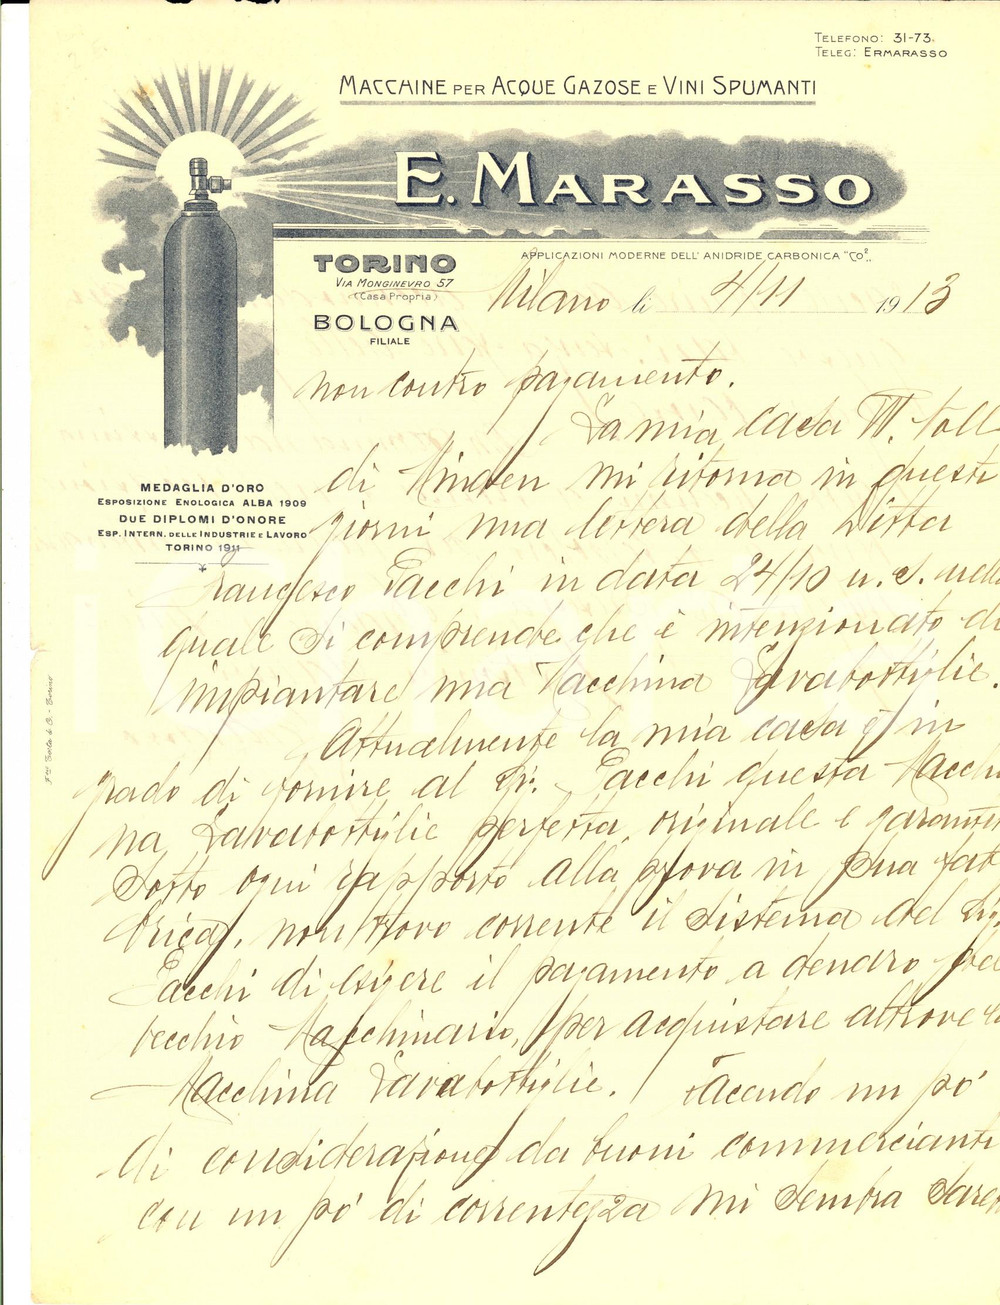 TELEFONO: 31-73.
TELEG: ERMARASSO
MACCHINE PER ACQUE GAZOSE E VINI SPUMANTI
E. MARASSO
APPLICAZIONI MODERNE DELL'ANIDRIDE CARBONICA "CO²"
TORINO
VIA MONGINEVRO 57
(CASA PROPRIA)
BOLOGNA
FILIALE
MEDAGLIA D'ORO
ESPOSIZIONE ENOLOGICA ALBA 1909
DUE DIPLOMI D'ONORE
ESP. INTERN. DELLE INDUSTRIE E LAVORO
TORINO 1911
Milano li 4/11 1913
non contro pagamento.
La mia casa W. Noll
di Minden mi ritorna in questi
giorni una lettera della Ditta
Francesco Pacchi in data 24/10 u.s. nella
quale si comprende che è intenzionato di
impiantare una Macchina Lavabottiglie.
Attualmente la mia casa è in
grado di fornire al Sr. Pacchi questa Macchi
na Lavabottiglie perfetta, originale e garantit
sotto ogni rapporto alla prova in sua fab
brica, non trovo corrente il sistema del Sig.
Pacchi di esigere il pagamento a denaro pel
vecchio Macchinario, per acquistare altrove la
Macchina Lavabottiglie. Facendo un pó
di considerazione da buoni commercianti
con un pó di correntezza mi sembra sare